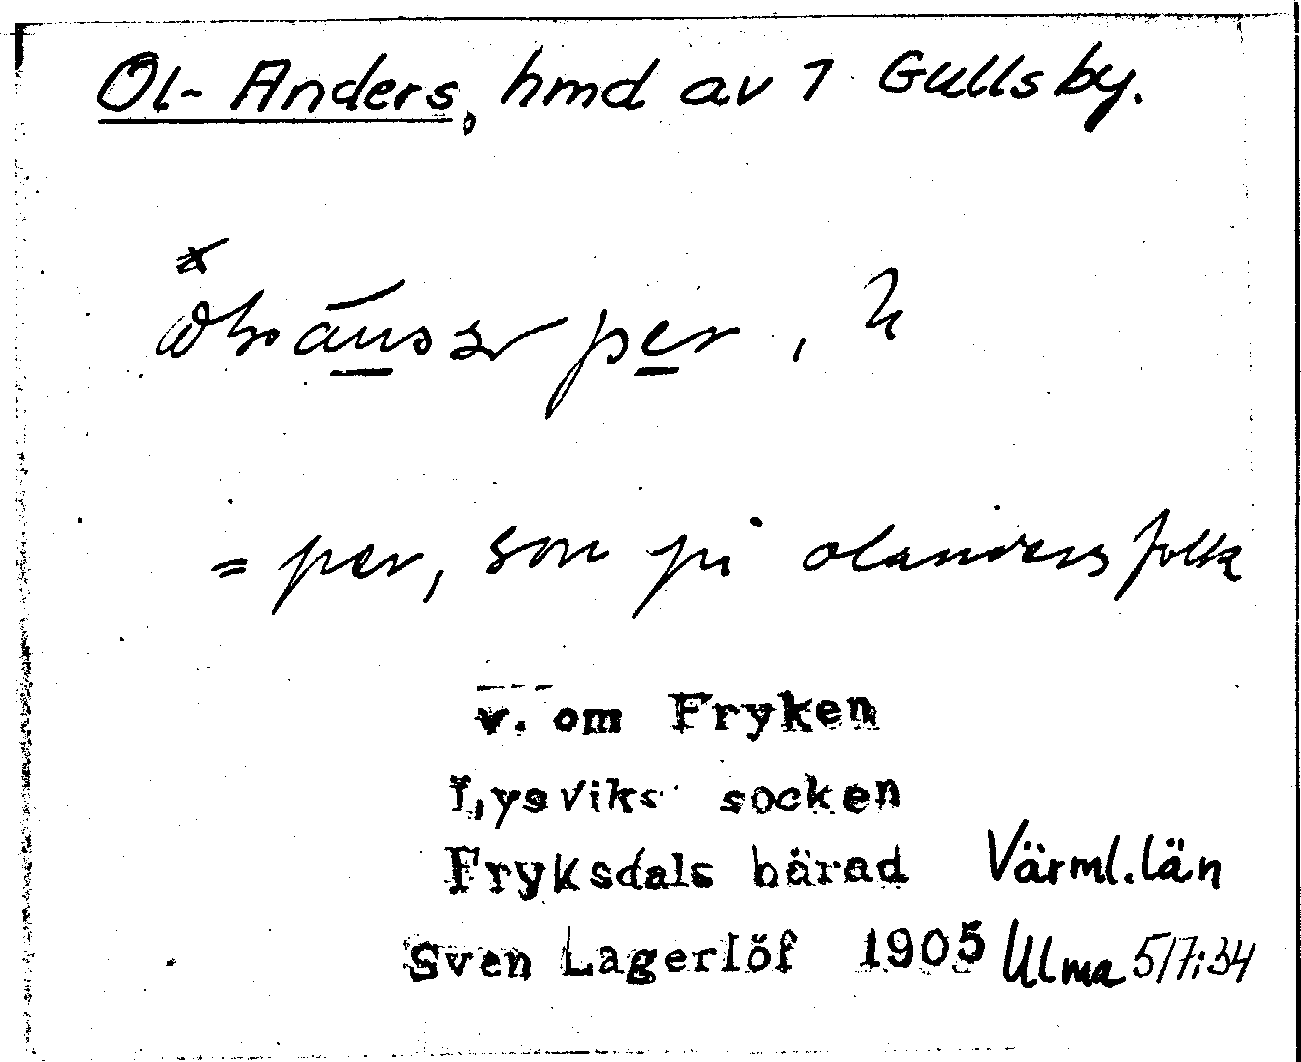 Ol-Anders, hmd av 1 Gullsby.
= per, son på olanders folk
v. om Fryken
Lysviks socken
Fryksdals härad Värml. län
Sven Lagerlöf 1905 Ulma 5/7:34